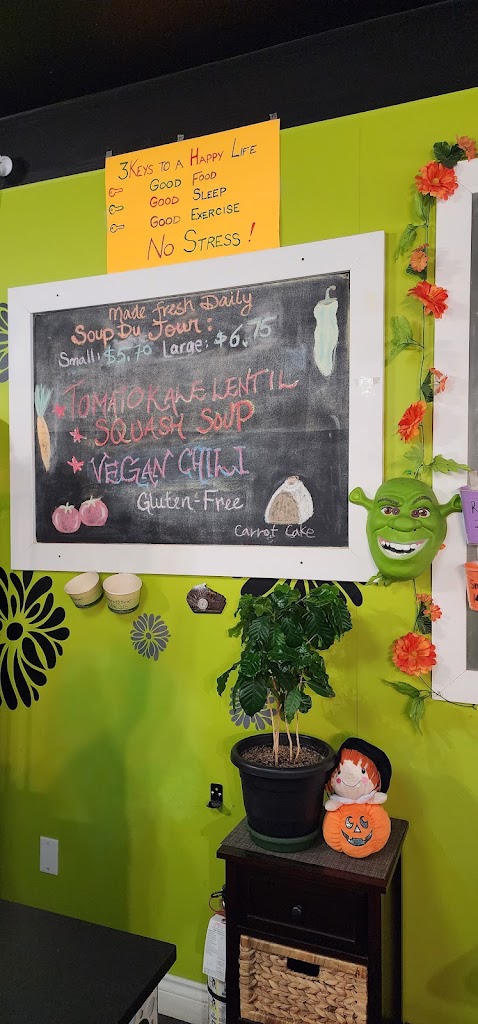 3 Keys to a Happy Life
Good Food
Good Sleep
Good Exercise
No Stress!
Made fresh Daily
Soup Du Jour:
Small: $5.70 Large: $6.75
TOMATO KALE LENTIL
SQUASH SOUP
VEGAN CHILI
Gluten-Free
Carrot Cake